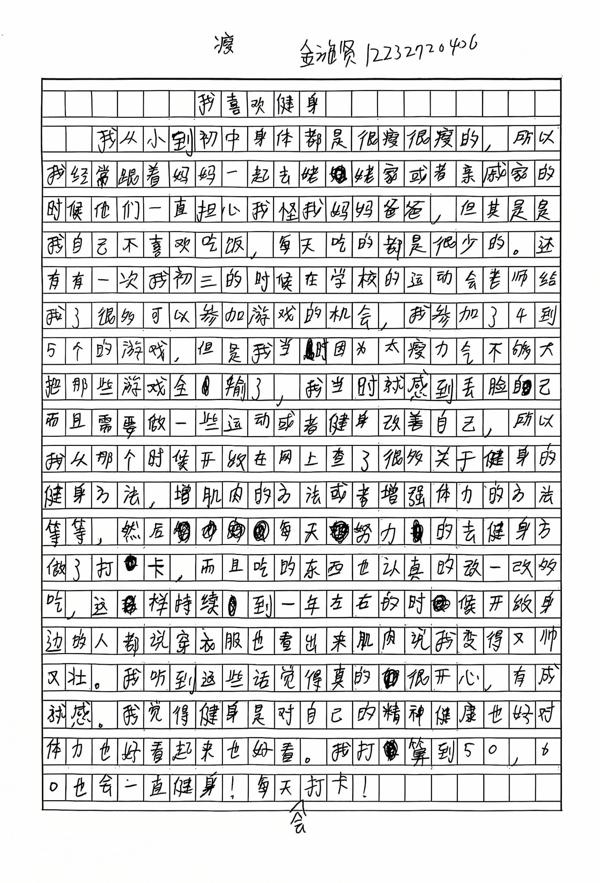 瘦 金海贤 12232720406
我喜欢健身
我从小到初中身体都是很瘦很瘦的，所以
我经常跟着妈妈一起去姥姥家或者亲戚家的
时候他们一直担心我怪我妈妈爸爸，但其是是
我自己不喜欢吃饭，每天吃的都是很少的。还
有有一次我初三的时候在学校的运动会老师给
我了很多可以参加游戏的机会，我参加了4到
5个的游戏，但是我当时因为太瘦力气不够大
把那些游戏全输了，我当时就感到丢脸自己
而且需要做一些运动或者健身改善自己，所以
我从那个时候开始在网上查了很多关于健身的
健身方法，增肌肉的方法或者增强体力的方法
等等，然后每天努力的去健身方
做了打卡，而且吃的东西也认真的改一改多
吃，这样持续到一年左右的时候开始身
边的人都说穿衣服也看出来肌肉说我变得又帅
又壮。我听到这些话觉得真的很开心，有成
就感。我觉得健身是对自己的精神健康也好对
体力也好看起来也好看。我打算到50，6
0也会一直健身！每天打卡！
会